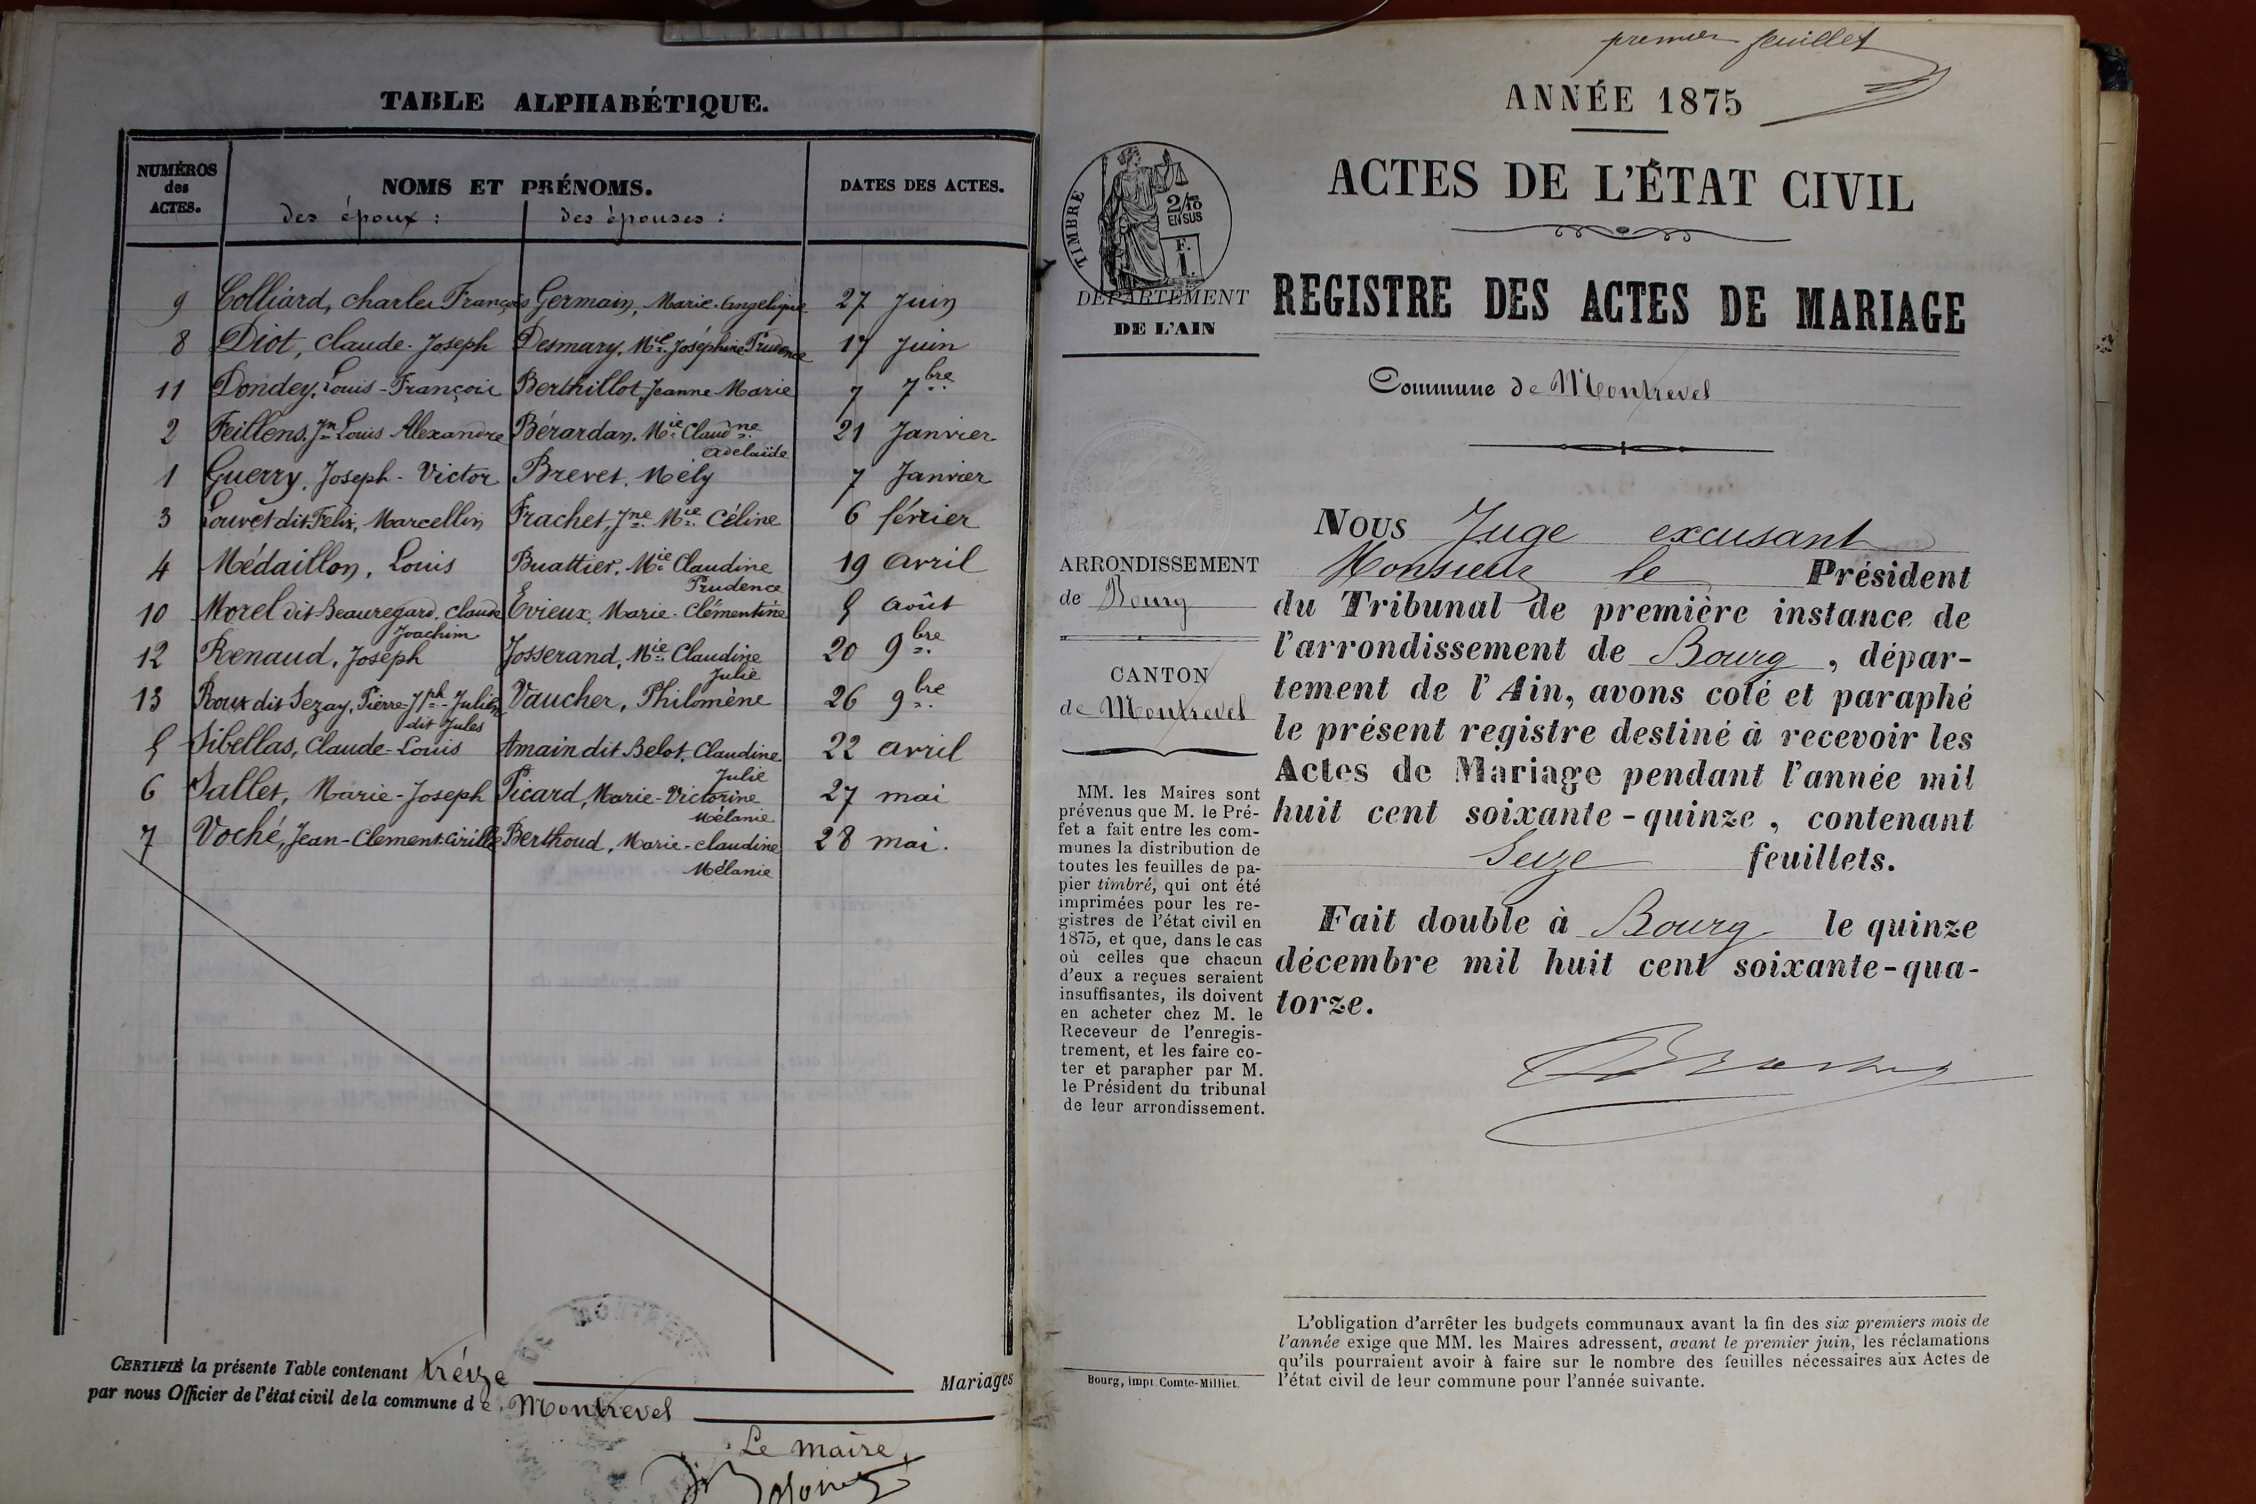 TABLE ALPHABÉTIQUE.
NUMÉROS des ACTES. NOMS ET PRÉNOMS. DATES DES ACTES.
des époux : des épouses :
9 Colliard, Charles François Germain, Marie-Angélique 27 Juin
8 Diot, Claude-Joseph Desmary, Mie Joséphine Prudence 17 Juin
11 Dondey, Louis-François Berthillot, Jeanne-Marie 7 7bre
2 Feillens, Jn Louis Alexandre Bérardan, Mie Claudne Adelaïde 21 Janvier
1 Guerry, Joseph-Victor Brevet, Mély 7 Janvier
3 Louvet dit Félix, Marcellin Frachet, Jne Mie Céline 6 février
4 Médaillon, Louis Buattier, Mie Claudine Prudence 19 avril
10 Morel dit Beauregard, Claude Joachim Evieux, Marie-Clémentine 5 août
12 Renaud, Joseph Josserand, Mie Claudine Julie 20 9bre
13 Roux dit Sezay, Pierre-Jph-Julien dit Jules Vaucher, Philomène 26 9bre
5 Sibellas, Claude-Louis Amain dit Belot, Claudine Julie 22 avril
6 Sallet, Marie-Joseph Picard, Marie-Victorine Mélanie 27 mai
7 Voché, Jean-Clement-Cirille Berthoud, Marie-Claudine Mélanie 28 mai.
CERTIFIÉ la présente Table contenant tréize Mariages
par nous Officier de l'état civil de la commune de Montrevel
Le maire,
premier feuillet
ANNÉE 1875
ACTES DE L'ÉTAT CIVIL
REGISTRE DES ACTES DE MARIAGE
TIMBRE
2/10
EN SUS
F.
1.
DÉPARTEMENT
DE L'AIN
Commune de Montrevel
ARRONDISSEMENT
de Bourg
CANTON
de Montrevel
MM. les Maires sont
prévenus que M. le Pré-
fet a fait entre les com-
munes la distribution de
toutes les feuilles de pa-
pier timbré, qui ont été
imprimées pour les re-
gistres de l'état civil en
1875, et que, dans le cas
où celles que chacun
d'eux a reçues seraient
insuffisantes, ils doivent
en acheter chez M. le
Receveur de l'enregis-
trement, et les faire co-
ter et parapher par M.
le Président du tribunal
de leur arrondissement.
Bourg, impr. Comte-Milliet.
Nous Juge excusant
Monsieur le Président
du Tribunal de première instance de
l'arrondissement de Bourg, dépar-
tement de l'Ain, avons coté et paraphé
le présent registre destiné à recevoir les
Actes de Mariage pendant l'année mil
huit cent soixante-quinze, contenant
Seize feuillets.
Fait double à Bourg le quinze
décembre mil huit cent soixante-qua-
torze.
L'obligation d'arrêter les budgets communaux avant la fin des six premiers mois de
l'année exige que MM. les Maires adressent, avant le premier juin, les réclamations
qu'ils pourraient avoir à faire sur le nombre des feuilles nécessaires aux Actes de
l'état civil de leur commune pour l'année suivante.